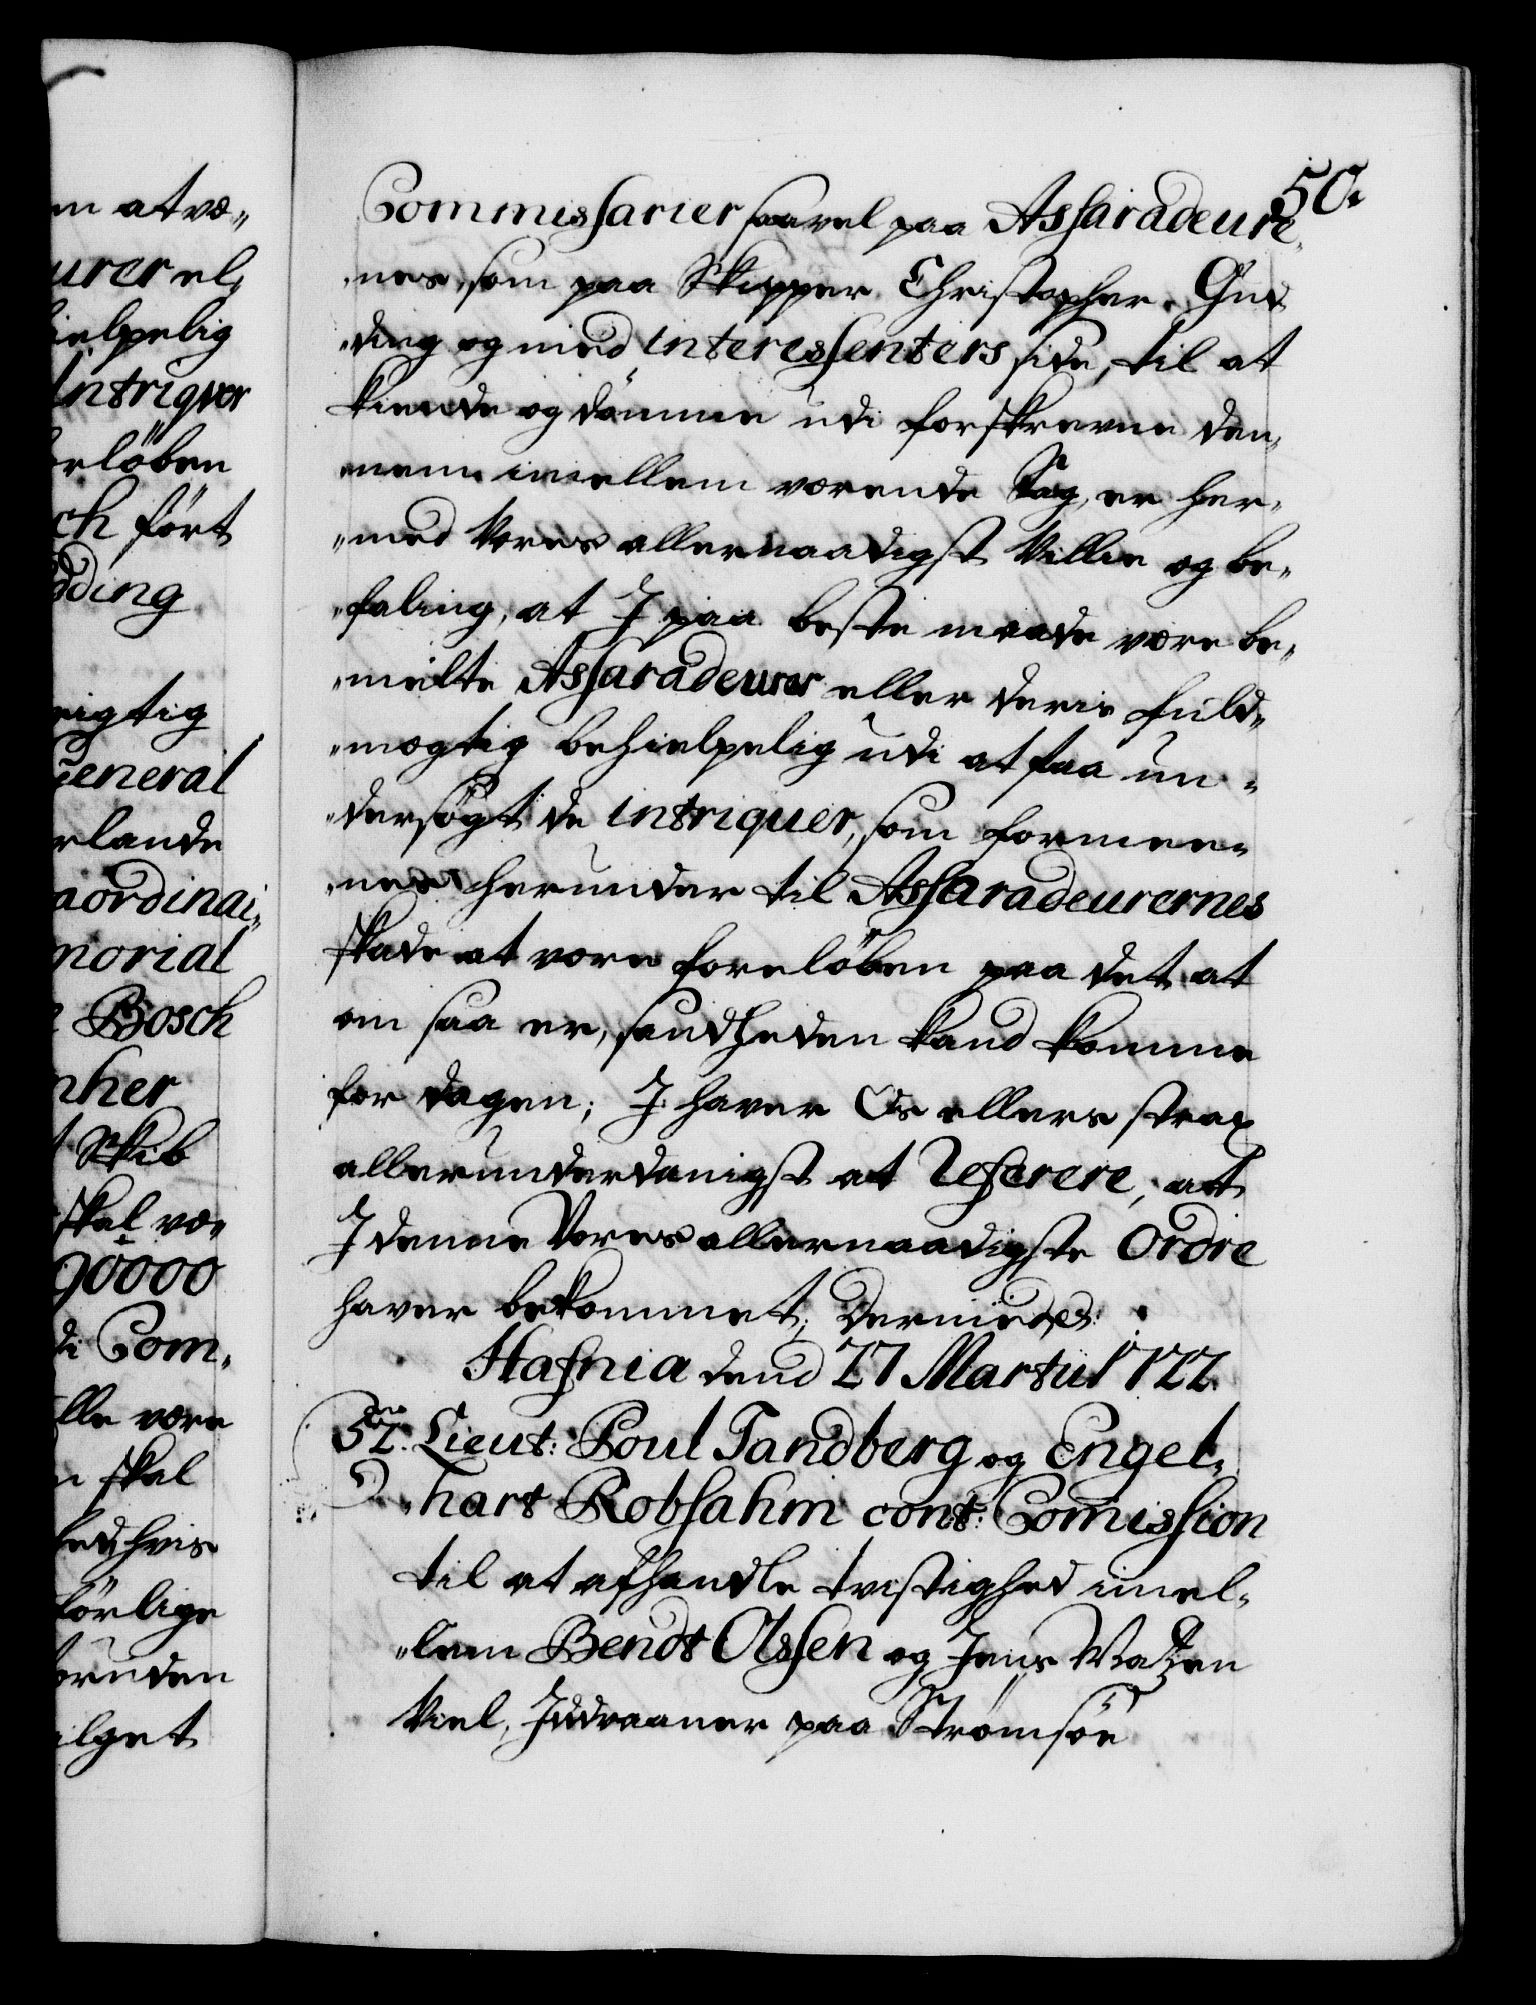 m at væ„
urer el„
ielpelig
Intriqver
erløben
ch ført
dding
rigtig
General
rlande
aordinai„
morial
Bosch
nher
Skib
skal væ„
90000
di Com„
lle være
n skal
hed, hvis
førlige
oruden
ilget
50.
Commissarier saavel paa Assaradeure„
„nes, som paa Skipper Christopher Gud„
„ding og med interessenters side, til at
kiende og dømme udi forskrevne den„
„nem imellem værende Sag, er her„
„med Vores allernaadigst Villie og be„
„faling, at I paa beste maade være be„
„melte Assaradeurer eller deris fuld„
„mægtig behielpelig udi at faa un„
„dersøgt de intriquer, som formee„
„nes herunder til Assaradeurernes
skade at være foreløben paa det at
om saa er, sandheden kand komme
for dagen; I haver Os ellers strax
allerunderdanigst at Referere, at
I denne Vores allernaadigste Ordre
haver bekommet; Dermed p:
Hafnia dend 27 Martii 1722.
52. Lieut: Poul Tandberg og Engel„
„hart Robsahm cont: Comission
til at afhandle tvistighed imel„
„lem Bendt Olssen og Jens Madsen
Kiel, Indvaaner paa Strømsøe